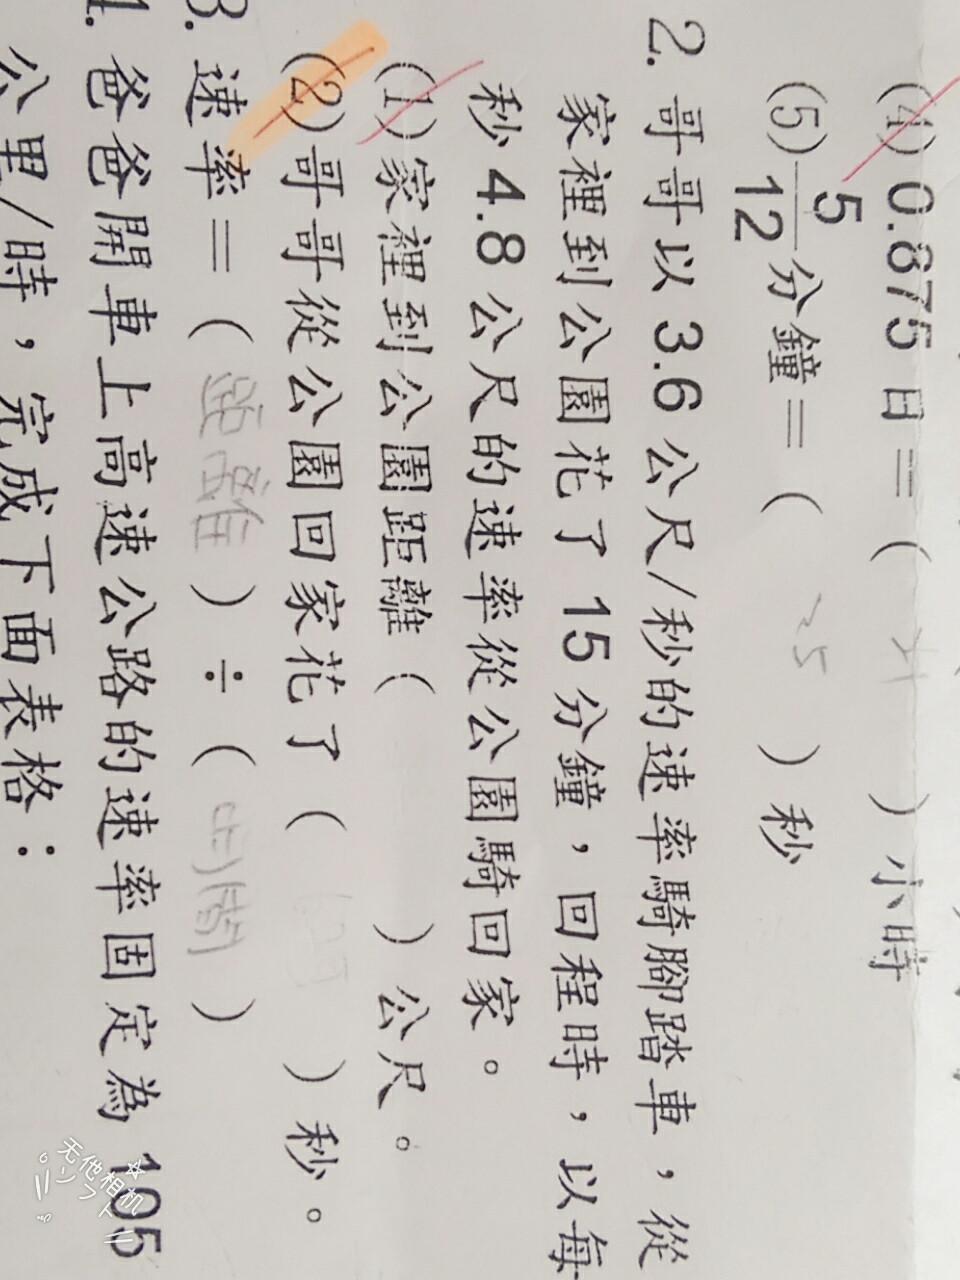 (4) 0.875日=( 21 )小時
(5) 5/12 分鐘=( 25 )秒
2. 哥哥以3.6公尺/秒的速率騎腳踏車，從
家裡到公園花了15分鐘，回程時，以每
秒4.8公尺的速率從公園騎回家。
(1)家裡到公園距離( )公尺。
(2)哥哥從公園回家花了( )秒。
3. 速率=( 距離 )÷( 時間 )
4. 爸爸開車上高速公路的速率固定為105
公里/時，完成下面表格：
无他相机